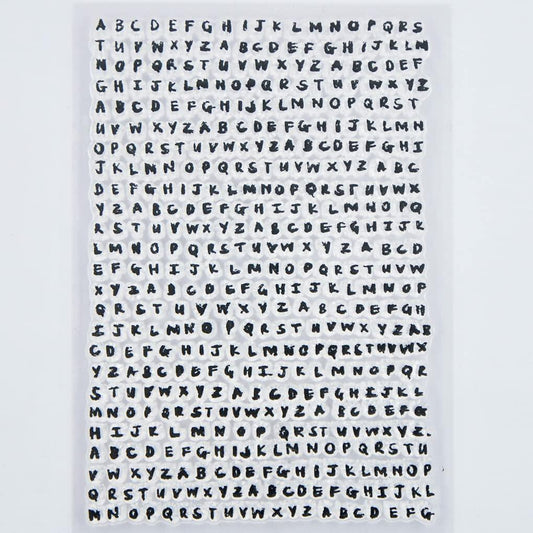 A B C D E F G H I J K L M N O P Q R S
T U V W X Y Z A B C D E F G H I J K L M
N O P Q R S T U V W X Y Z A B C D E F
G H I J K L M N O P Q R S T U V W X Y Z
A B C D E F G H I J K L M N O P Q R S T
U V W X Y Z A B C D E F G H I J K L M N
O P Q R S T U V W X Y Z A B C D E F G H I
J K L M N O P Q R S T U V W X Y Z A B C
D E F G H I J K L M N O P Q R S T U V W X
Y Z A B C D E F G H I J K L M N O P Q
R S T U V W X Y Z A B C D E F G H I J K
L M N O P Q R S T U V W X Y Z A B C D
E F G H I J K L M N O P Q R S T U V W
X Y Z A B C D E F G H I J K L M N O P
Q R S T U V W X Y Z A B C D E F G H
I J K L M N O P Q R S T U V W X Y Z A B
C D E F G H I J K L M N O P Q R S T U V W X
Y Z A B C D E F G H I J K L M N O P Q R
S T U V W X Y Z A B C D E F G H I J K L
M N O P Q R S T U V W X Y Z A B C D E F G
H I J K L M N O P Q R S T U V W X Y Z .
A B C D E F G H I J K L M N O P Q R S T U
V W X Y Z A B C D E F G H I J K L M N O P
Q R S T U V W X Y Z A B C D E F G H I J K L
M N O P Q R S T U V W X Y Z A B C D E F G